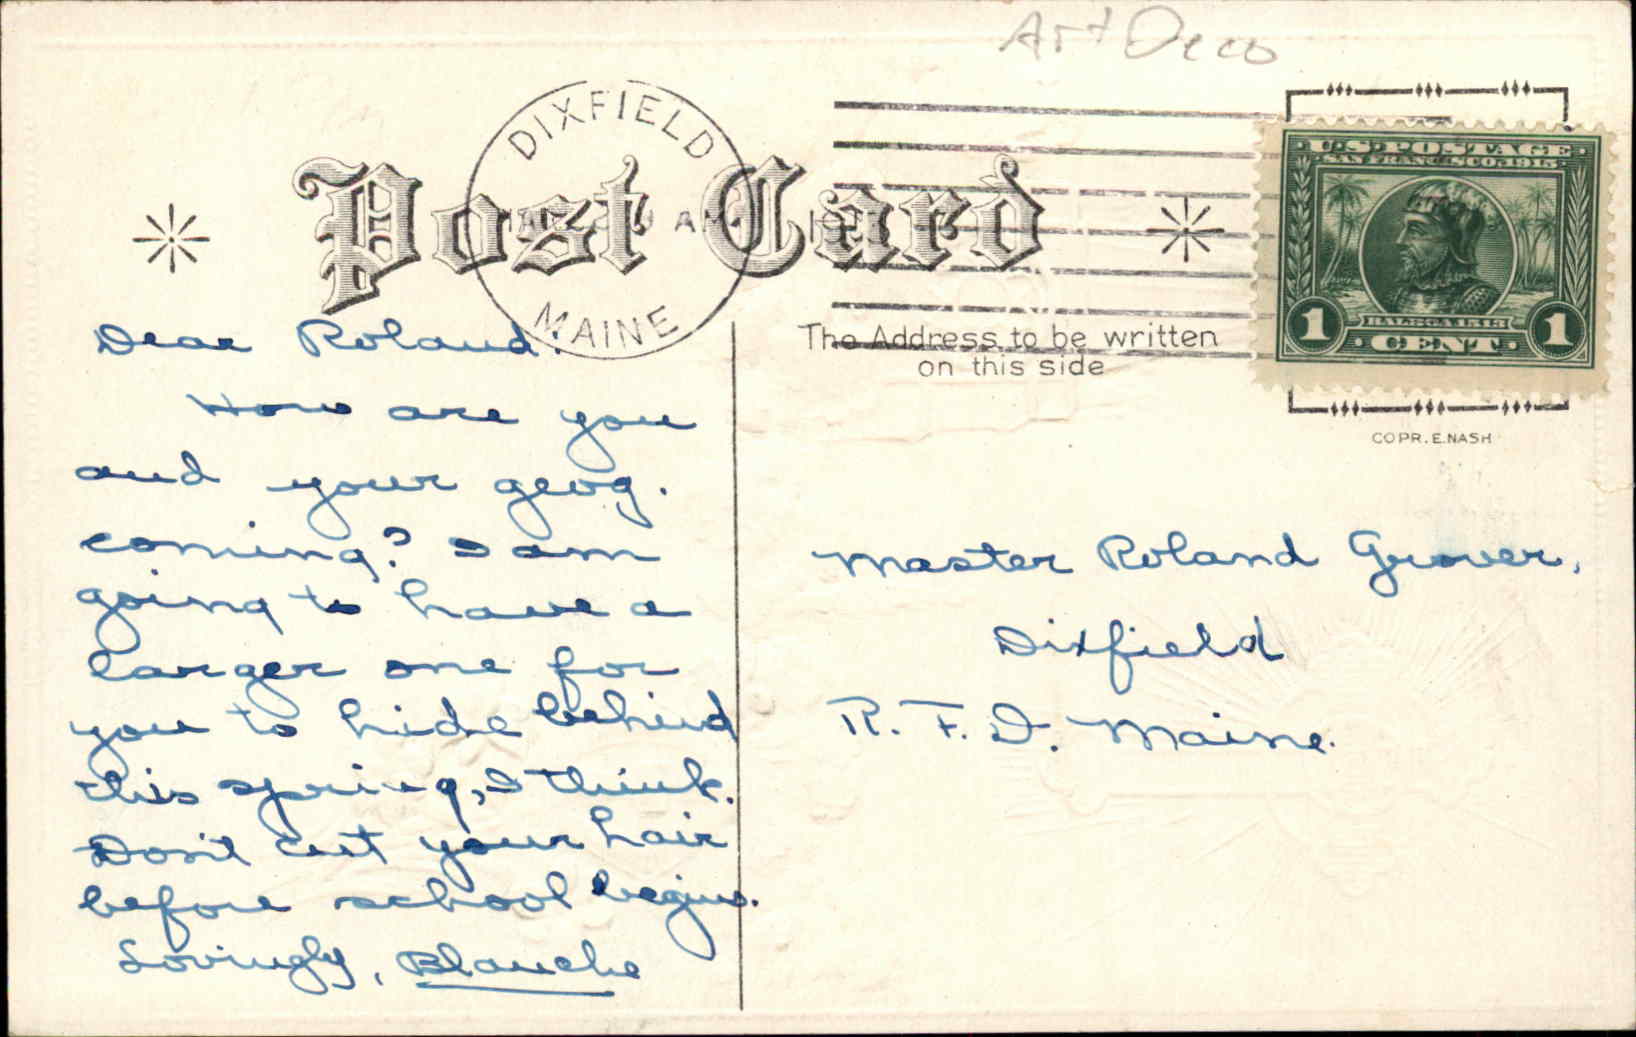 Art Deco
DIXFIELD
MAINE
U.S. POSTAGE
SAN FRANCISCO 1915
BALBOA 1513
1 CENT 1
Post Card
The Address to be written
on this side
COPR. E. NASH
Dear Roland.
How are you
and your geog.
coming? I am
going to have a
larger one for
you to hide behind
this spring, I think.
Don't cut your hair
before school begins.
Lovingly, Blanche
Master Roland Grover,
Dixfield
R. F. D. Maine.